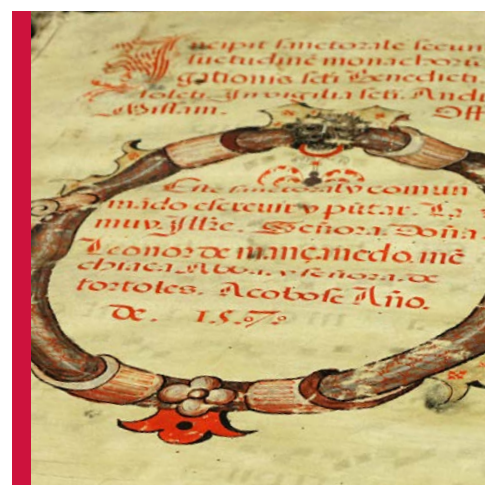 Incipit sanctorale secun
suetudinē monachorū
gationis scti Benedicti.
toleti. In vigilia scti. Andr
Missam. Off
Este sanctoraly comun
mādo escreuir y pūtar. La
muy Jllrᷤe. Señora. Doña
Leonor de mançanedo. mē
señora. de
tortoles. Acobose Año.
de. 1.5.7.